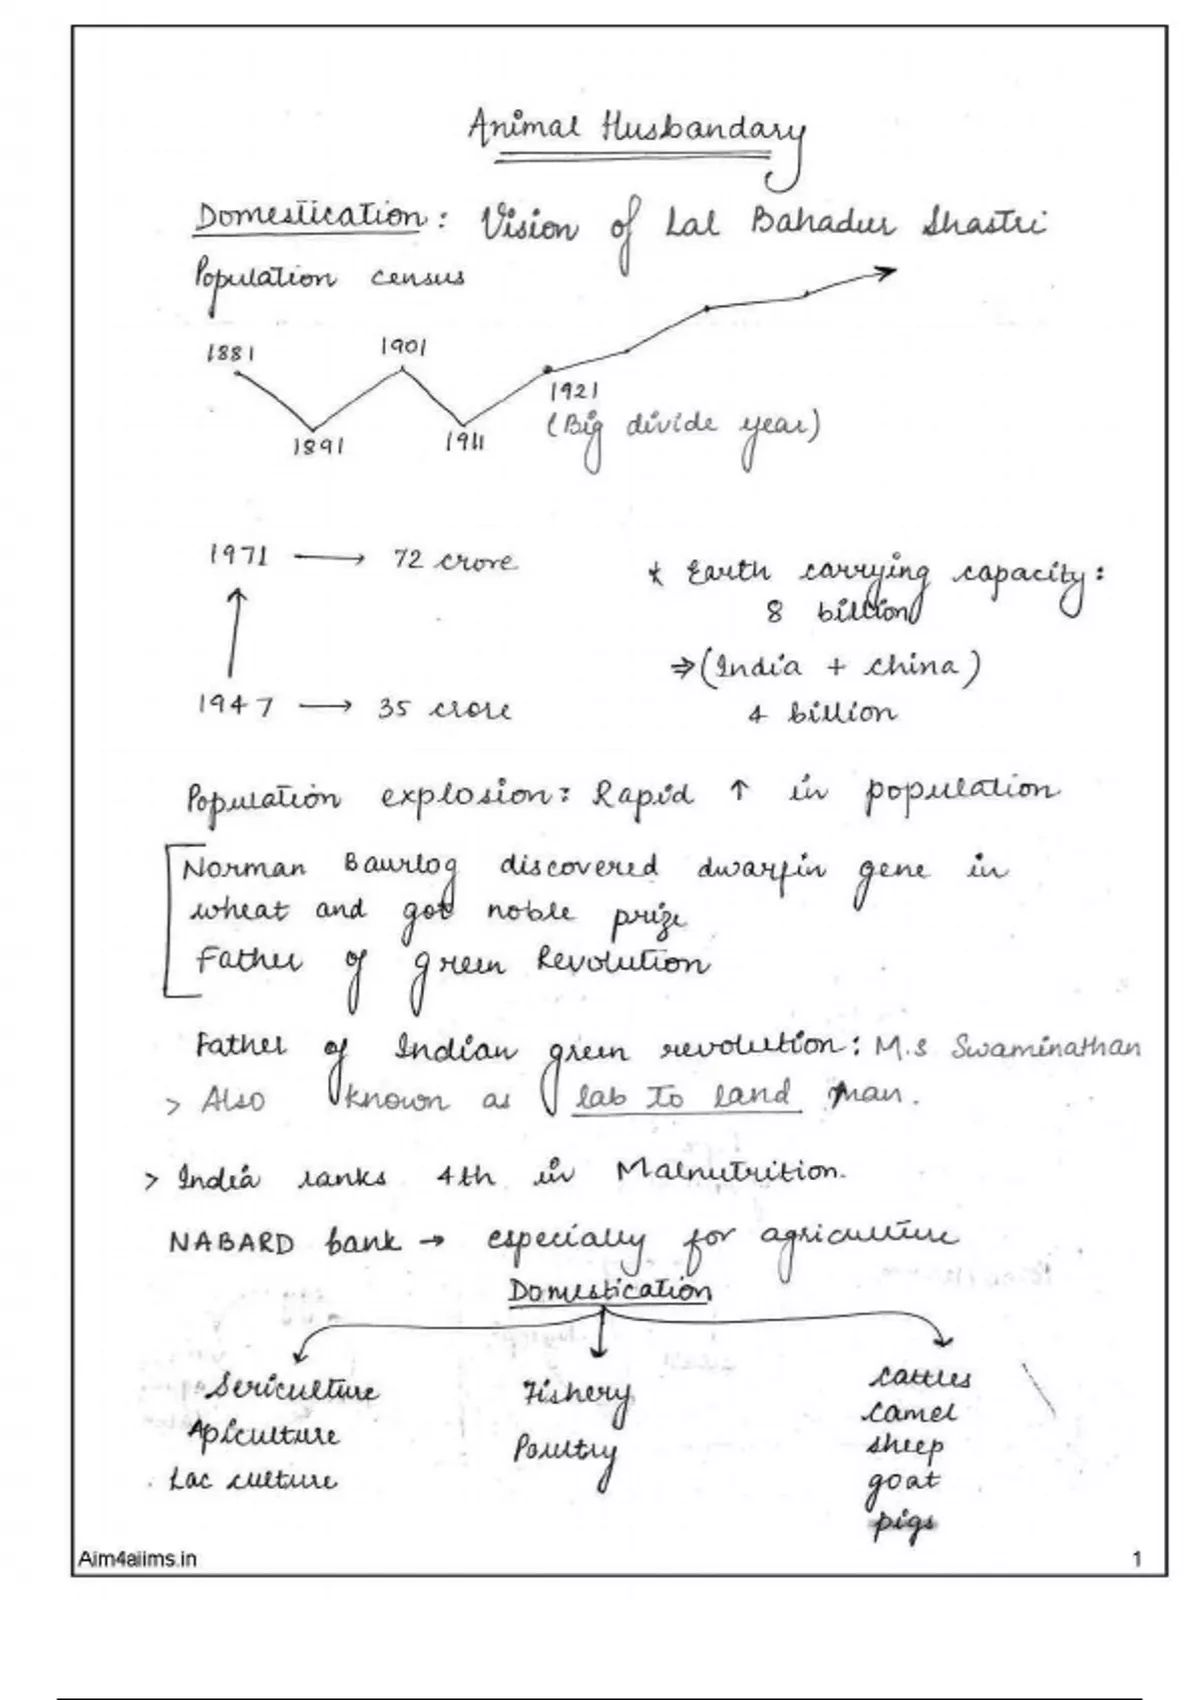 Animal Husbandary
Domestication: Vision of Lal Bahadur Shastri
Population census
1881
1901
1891
1911
1921
(Big divide year)
1971 → 72 crore
* Earth carrying capacity:
8 billion
⇒ (India + china)
4 billion
1947 → 35 crore
Population explosion: Rapid ↑ in population
Norman Baurlog discovered dwarfin gene in
wheat and got noble prize
Father of green Revolution
Father of Indian green revolution: M.S Swaminathan
> Also known as lab to land man.
> India ranks 4th in Malnutrition.
NABARD bank → especially for agriculture
Domestication
Sericulture
Apiculture
Lac culture
Fishery
Poultry
cattles
camel
sheep
goat
pigs
Aim4aiims.in
1